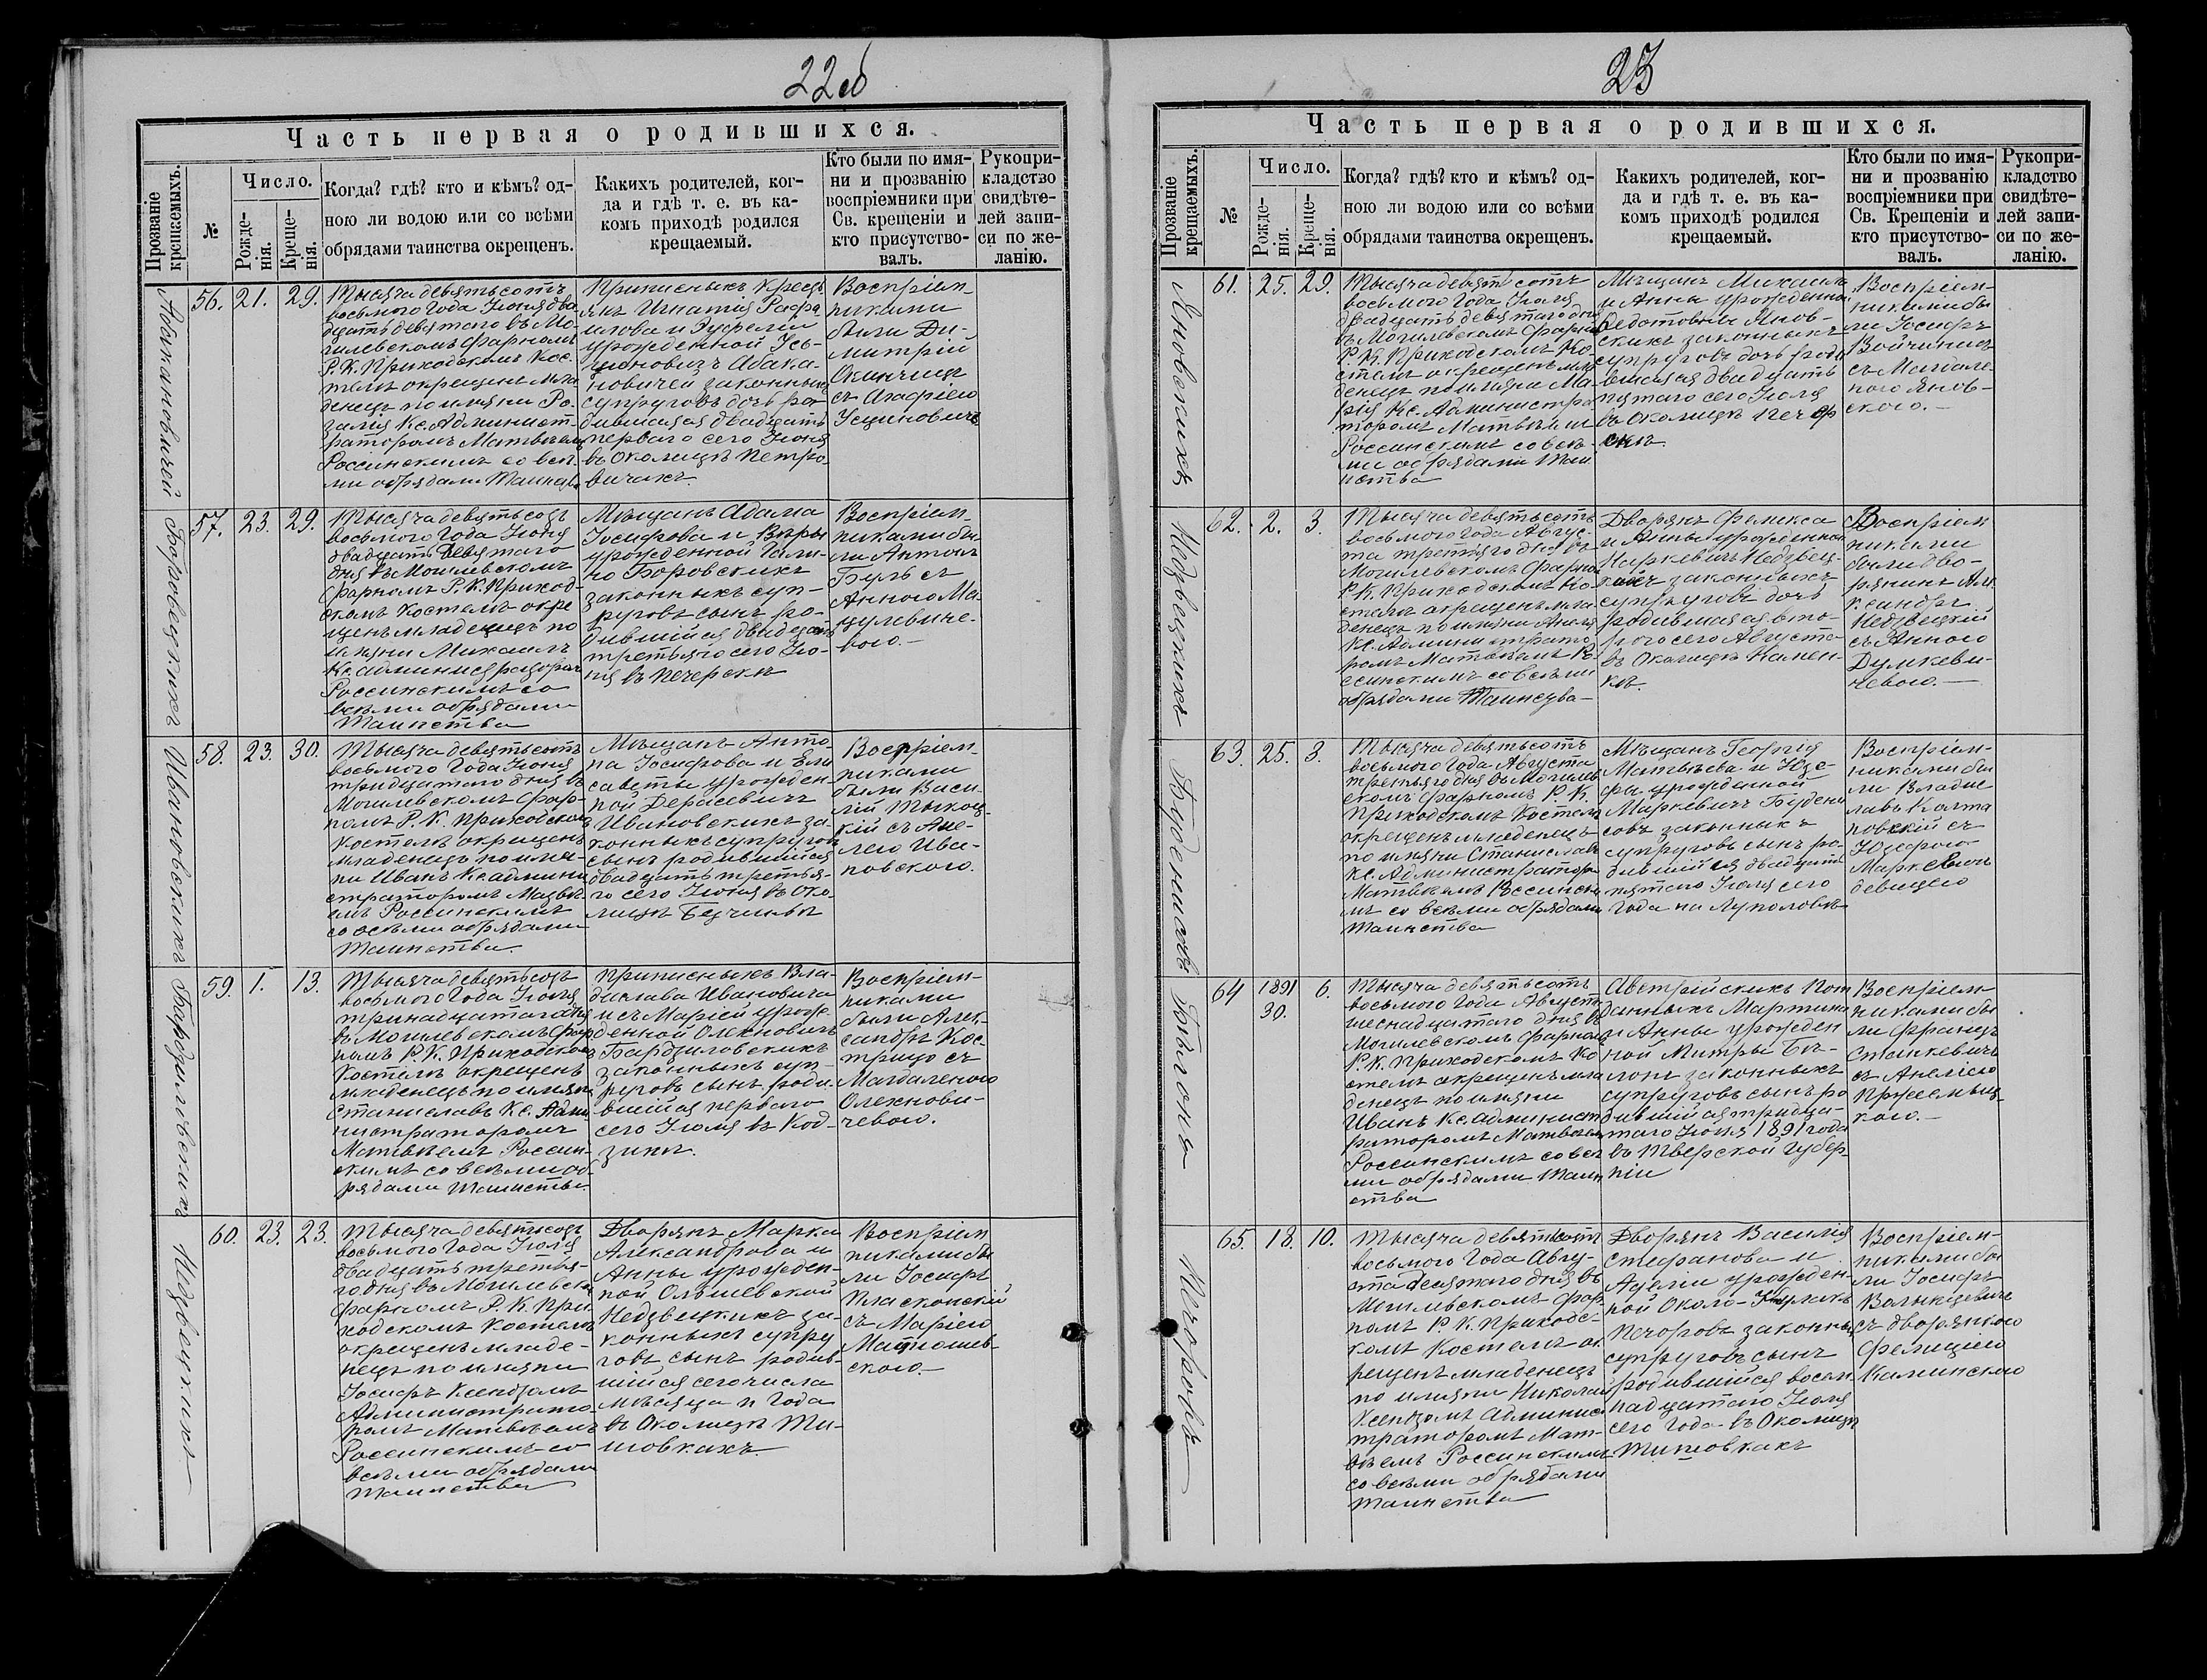 22об
Часть первая о родившихся.
Прозваніе крещаемыхъ.
№
Число.
Рожде-
нія.
Креще-
нія.
Когда? гдѣ? кто и кѣмъ? од-
ною ли водою или со всѣми
обрядами таинства окрещенъ.
Какихъ родителей, ког-
да и гдѣ т. е. въ ка-
комъ приходѣ родился
крещаемый.
Кто были по имя-
ни и прозванію
воспріемники при
Св. крещеніи и
кто присутство-
валъ.
Рукопри-
кладство
свидѣте-
лей запи-
си по же-
ланію.
56. 21. 29.
Тысяча девятьсотъ
восьмого Года Іюня два
дцать девятаго въ Мо-
гилевскомъ Фарномъ
Р. К. Приходскомъ Кос.
телѣ окрещенъ мла
денецъ по имяни Ро-
залія Кс. Админист
раторомъ Матвѣемъ
Россинскимъ со всѣ.
ми обрядами Таинства
Приписныхъ Кресть
янъ Игнатія Рафа
илова и Эуфеміи
урожденной Усь-
циновичъ Абака-
новичей законныхъ
супруговъ дочь ро-
дившаяся двадцать
перваго сего Іюня
въ Околицѣ Петро-
вичахъ.
Воспріем-
никами
были Ди-
митрій
Окинчицъ
съ Агафіею
Усциновичъ
57. 23. 29.
Боровскихъ
Тысяча девятьсотъ
восьмого Года Іюня
двадцать девятаго
дня въ Могилевскомъ
Фарномъ Р. К. Приход-
скомъ Костелѣ окре
щенъ младенецъ по
имяни Михаилъ
Кс. администраторомъ
Россинскимъ со
всѣми обрядами
Таинства
Мѣщанъ Адама
Іосифова и Вѣры
урожденной Гали-
но Боровскихъ
законныхъ суп-
руговъ сынъ ро-
дившійся двадцать
третьяго сего Ію-
ня въ Печерскѣ
Воспріем-
никами бы-
ли Антонъ
Буль съ
Анною Ма-
цулевиче-
вою.—
58. 23. 30.
Ивановскихъ
Тысяча девятьсотъ
восьмого Года Іюня
тридцатаго дня въ
Могилевскомъ Фар-
номъ Р. К. Приходскомъ
Костелѣ окрещенъ
младенецъ по имя-
ни Иванъ Кс. админи
страторомъ Матвѣ-
емъ Россинскимъ
со всѣми обрядами
Таинства
Мѣщанъ Анто-
на Іосифова и Ели
саветы урожден-
ной Герасевичъ
Ивановскихъ за-
конныхъ супруговъ
сынъ родившійся
двадцать третья-
го сего Іюня въ Око-
лицѣ
Воспріем-
никами
были Васи-
лій Тыкоц-
кій съ Ане-
лею Ива-
новскою.
59. 1. 13.
Бардзиловскихъ
Тысяча девятьсотъ
восьмого Года Іюля
тринадцатаго дня
въ Могилевскомъ Фар
номъ Р. К. Приходскомъ
Костелѣ окрещенъ
младенецъ по имяни
Станиславъ Кс. Адми
нистраторомъ
Матвѣемъ Россин-
скимъ со всѣми об-
рядами Таинства.
Приписныхъ Вла-
дислава Ивановича
и съ Маріей урож-
денной Олехновичъ
Бардзиловскихъ
законныхъ суп-
руговъ сынъ роди-
вшійся перваго
сего Іюля въ Код-
зинѣ.
Воспріем-
никами
были Алек-
сандръ Кос
трицо съ
Магдаленою
Олехнови-
чевою.
60. 23. 23.
Недзвецкихъ
Тысяча девятьсотъ
восьмого Года Іюля
двадцать третья-
го дня въ Могилевско
Фарномъ Р. К. При
ходскомъ Костелѣ
окрещенъ младе-
нецъ по имяни
Іосифъ Ксендзомъ
Администрато-
ромъ Матвѣемъ
Россинскимъ со
всѣми обрядами
Таинства
Дворянъ Марка
Александрова и
Анны урожден-
ной Ольшевской
Недзвецкихъ за-
конныхъ супру
говъ сынъ родив-
шійся сего числа
мѣсяца и Года
въ Околицѣ Ти-
шовкахъ.
Воспріем
никами бы
ли Іосифъ
Пласконскій
съ Маріею
Матюшев-
скою.—
23
Часть первая о родившихся.
Прозваніе крещаемыхъ.
№
Число.
Рожде-
нія.
Креще-
нія.
Когда? гдѣ? кто и кѣмъ? од-
ною ли водою или со всѣми
обрядами таинства окрещенъ.
Какихъ родителей, ког-
да и гдѣ т. е. въ ка-
комъ приходѣ родился
крещаемый.
Кто были по имя-
ни и прозванію
воспріемники при
Св. Крещеніи и
кто присутство-
валъ.
Рукопри-
кладство
свидѣте-
лей запи-
си по же-
ланію.
61. 25. 29.
Яновскихъ
Тысяча девятьсотъ
восьмого Года Іюля
двадцать девятаго дня
въ Могилевскомъ Фарно
Р. К. Приходскомъ Ко-
стелѣ окрещенъ мла
денецъ по имяни Ма-
рія Кс. Администра
торомъ Матвѣемъ
Россинскимъ со всѣ-
ми обрядами Таи
нства
Мѣщанъ Михаила
и Анны урожденно
Федотовны Янов-
скихъ законныхъ
супруговъ дочь роди
вшаяся двадцать
пятаго сего Іюля
въ Околицѣ Печер
скѣ.
Воспріем-
никами бы
ли Іосифъ
Войчиницъ
съ Магдале-
ною Янов-
скою.—
62. 2. 3.
Недзвецкихъ
Тысяча девятьсотъ
восьмого года Авгус-
та третьяго дня въ
Могилевскомъ Фарно
Р. К. Приходскомъ Ко-
стелѣ окрещенъ мла
денецъ по имяни Анеля
Кс. Администрато
ромъ Матвѣемъ Ро
ссинскимъ со всѣми
обрядами Таинства—
Дворянъ Феликса
и Анны урожденной
Наркевичъ Недзвец-
кихъ законныхъ
супруговъ дочь
родившаяся вто-
рого сего Августа
въ Околицѣ Камен-
кѣ.
Воспріем
никами
были дво-
рянинъ Але
ксандръ
Недзвецкій
съ Анною
Думкеви-
чевою.—
63. 25. 3.
Тысяча девятьсотъ
восьмого Года Августа
третьяго дня въ Могилев
скомъ Фарномъ Р. К.
Приходскомъ Костелѣ
окрещенъ младенецъ
по имяни Станиславъ
Кс. Администраторо
Матвѣемъ Россински
мъ со всѣми обрядами
Таинства
Мѣщанъ Георгія
Матвѣева и Юзе-
фы урожденной
Маркевичъ Будени
совъ законныхъ
супруговъ сынъ ро-
дившійся двадцать
пятаго Іюля сего
Года на Луполовѣ
Воспріем-
никами бы
ли Владис
лавъ Колта
новскій съ
Юзефою
дѣвицею
64 1891 30. 6.
Тысяча девятьсотъ
восьмого Года Августа
шеснадцатаго дня въ
Могилевскомъ Фарномъ
Р. К. Приходскомъ Ко
стелѣ окрещенъ мла
денецъ по имяни
Иванъ Кс. админист
раторомъ Матвѣемъ
Россинскимъ со всѣ
ми обрядами Таин
ства
Австрійскихъ Под
данныхъ Мартина
и Анны урожден
ной Митры Бѣ-
лонь законныхъ
супруговъ сынъ ро
дившійся тридца-
таго Іюня 1891 года
въ Тверской Губер-
ніи
Воспріем
никами бы
ли Францъ
Станкевичъ
съ Анелею
Пржесмыц-
кою.—
65. 18. 10.
Печоровъ
Тысяча девятьсотъ
восьмого Года Авгу-
ста Десятаго дня въ
Могилевскомъ Фар-
номъ Р. К. Приходс-
комъ Костелѣ ок
рещенъ младенецъ
по имяни Николай
Ксендзомъ Админис
траторомъ Мат-
вѣемъ Россинскимъ
со всѣми обрядами
Таинства
Дворянъ Василія
Стефанова и
Адели урожден-
ной Около-Кулакъ
Печоровъ законныхъ
супруговъ сынъ
родившійся восем
надцатаго Іюля
сего Года въ Околицѣ
Тишовкахъ
Воспріем-
никами бы
ли Іосифъ
Волынцевичъ
съ дворянкою
Фелиціею
Каминскою